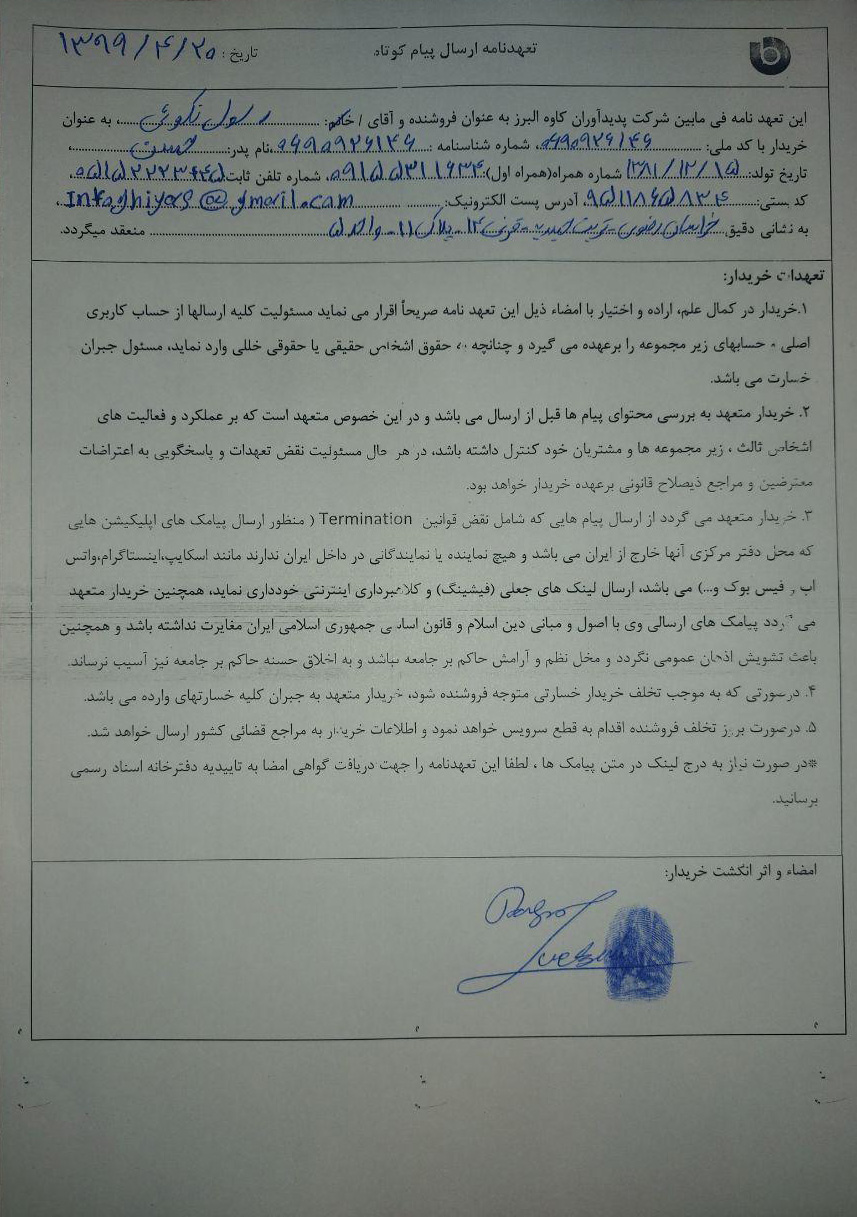 تعهدنامه ارسال پیام کوتاه
تاریخ: ۱۳۹۹/۴/۲۰
این تعهد نامه فی مابین شرکت پدیدآوران کاوه البرز به عنوان فروشنده و آقای / خانم: رسول نکوئی، به عنوان
خریدار با کد ملی: ۰۶۹۰۹۲۶۱۴۶، شماره شناسنامه: ۰۶۹۰۹۲۶۱۴۶، نام پدر: حسین،
تاریخ تولد: ۱۳۸۱/۱۲/۱۵ شماره همراه(همراه اول): ۰۹۱۵۵۳۱۱۶۳۴، شماره تلفن ثابت ۰۵۱۵۲۲۲۳۴۴۵،
کد پستی: ۹۵۱۱۸۶۵۸۳۴، آدرس پست الکترونیک: @gmail.com،
به نشانی دقیق خراسان رضوی - تربت حیدریه - قرنی ۱۴ - پلاک ۱۱ - واحد ۵ منعقد میگردد.
تعهدات خریدار:
۱.خریدار در کمال علم، اراده و اختیار با امضاء ذیل این تعهد نامه صریحاً اقرار می نماید مسئولیت کلیه ارسالها از حساب کاربری
اصلی و حسابهای زیر مجموعه را برعهده می گیرد و چنانچه به حقوق اشخاص حقیقی یا حقوقی خللی وارد نماید، مسئول جبران
خسارت می باشد.
۲. خریدار متعهد به بررسی محتوای پیام ها قبل از ارسال می باشد و در این خصوص متعهد است که بر عملکرد و فعالیت های
اشخاص ثالث ، زیر مجموعه ها و مشتریان خود کنترل داشته باشد، در هر حال مسئولیت نقض تعهدات و پاسخگویی به اعتراضات
معترضین و مراجع ذیصلاح قانونی برعهده خریدار خواهد بود.
۳. خریدار متعهد می گردد از ارسال پیام هایی که شامل نقض قوانین Termination ( منظور ارسال پیامک های اپلیکیشن هایی
که محل دفتر مرکزی آنها خارج از ایران می باشد و هیچ نماینده یا نمایندگانی در داخل ایران ندارند مانند اسکایپ،اینستاگرام،واتس
اپ و فیس بوک و...) می باشد، ارسال لینک های جعلی (فیشینگ) و کلاهبرداری اینترنتی خودداری نماید، همچنین خریدار متعهد
می گردد پیامک های ارسالی وی با اصول و مبانی دین اسلام و قانون اساسی جمهوری اسلامی ایران مغایرت نداشته باشد و همچنین
باعث تشویش اذهان عمومی نگردد و مخل نظم و آرامش حاکم بر جامعه نباشد و به اخلاق حسنه حاکم بر جامعه نیز آسیب نرساند.
۴. درصورتی که به موجب تخلف خریدار خسارتی متوجه فروشنده شود، خریدار متعهد به جبران کلیه خسارتهای وارده می باشد.
۵. درصورت بروز تخلف فروشنده اقدام به قطع سرویس خواهد نمود و اطلاعات خریدار به مراجع قضائی کشور ارسال خواهد شد.
*در صورت نیاز به درج لینک در متن پیامک ها ، لطفا این تعهدنامه را جهت دریافت گواهی امضا به تاییدیه دفترخانه اسناد رسمی
برسانید.
امضاء و اثر انگشت خریدار: